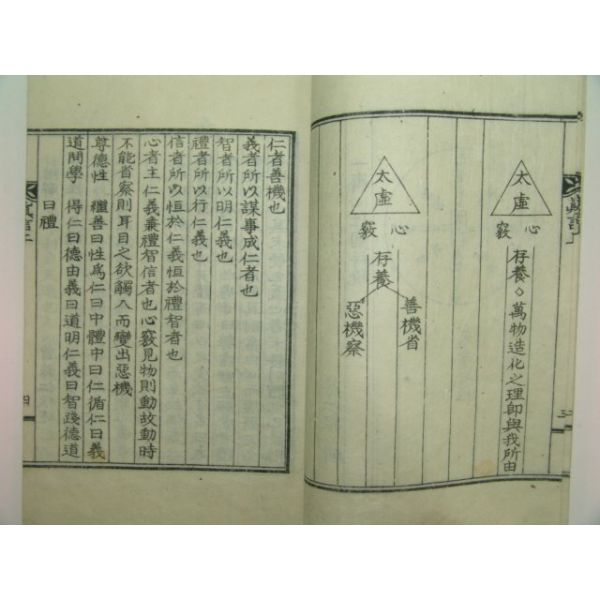 太虛
心竅
存養○萬物造化之理卽與我所由
太虛
心竅
存養
善機省
惡機察
三
仁者善機也
義者所以謀事成仁者也
智者所以明仁義也
禮者所以行仁義也
信者所以恒於仁義恒於禮智者也
心者主仁義兼禮智信者也心竅見物則動故動時
不能首察則耳目之欲觸入而變出惡機
尊德性 繼善曰性爲仁曰中體中曰仁循仁曰義
道問學 得仁曰德由義曰道明仁義曰智踐德道
曰禮
四